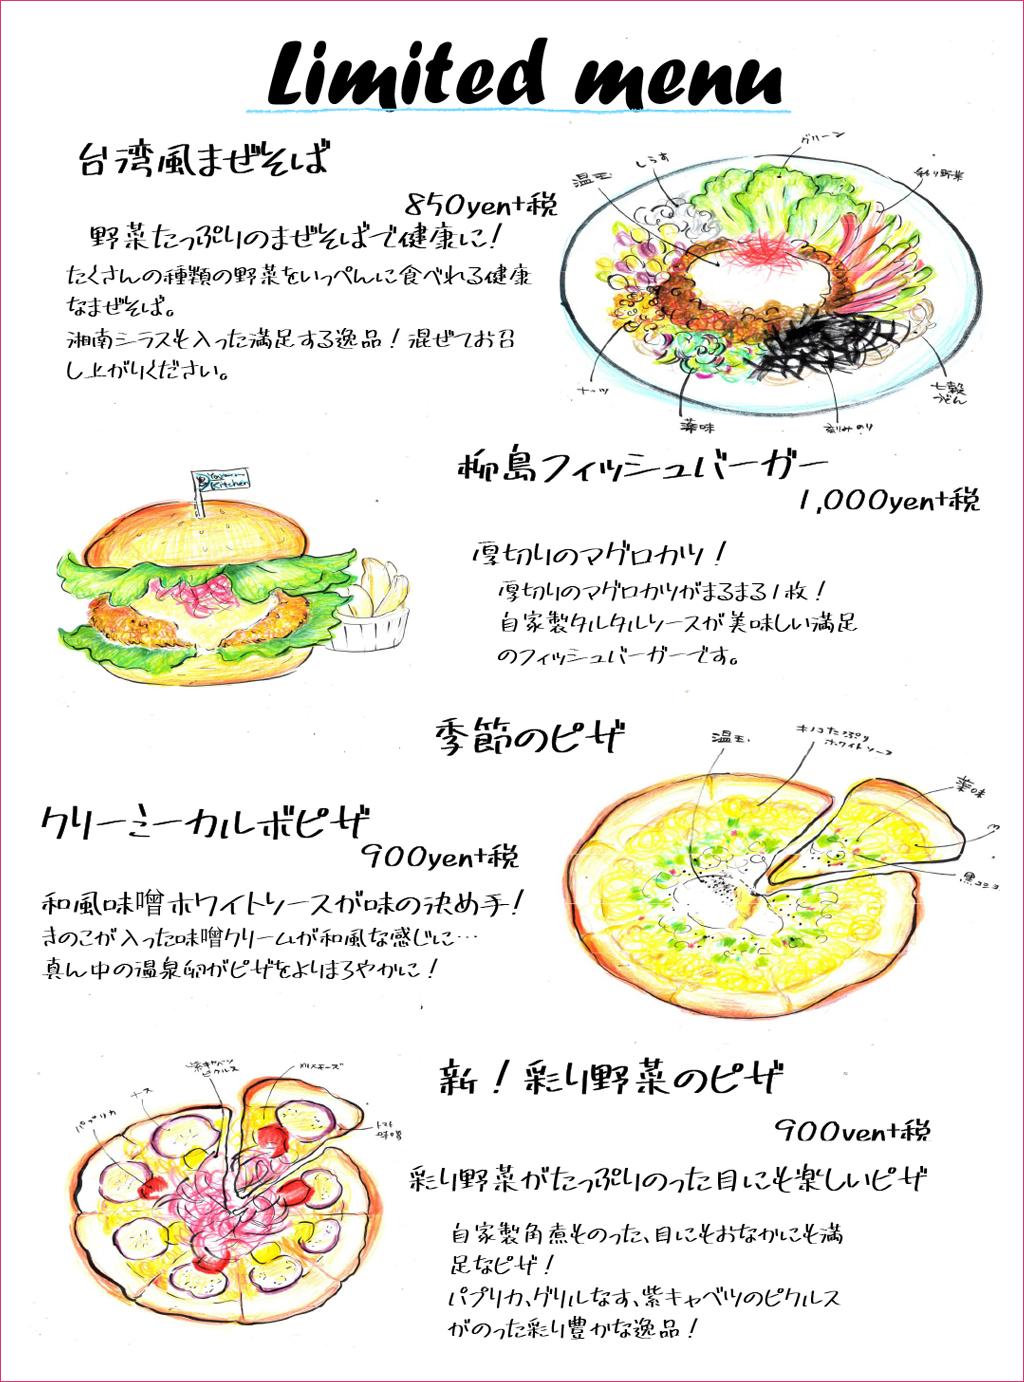 Limited menu
台湾風まぜそば
850yen+税
野菜たっぷりのまぜそばで健康に!
たくさんの種類の野菜をいっぺんに食べれる健康
なまぜそば。
湘南シラスも入った満足する逸品!混ぜてお召
し上がりください。
グリーン
しらす
温玉
彩り野菜
ナッツ
薬味
刻みのり
七穀
うどん
柳島フィッシュバーガー
1,000yen+税
Kitchen
厚切りのマグロカツ!
厚切りのマグロカツがまるまる1枚!
自家製タルタルソースが美味しい満足
のフィッシュバーガーです。
季節のピザ
クリーミーカルボピザ
900yen+税
和風味噌ホワイトソースが味の決め手!
きのこが入った味噌クリームが和風な感じに…
真ん中の温泉卵がピザをよりまろやかに!
温玉
キノコたっぷり
ホワイトソース
薬味
黒コショ
新!彩り野菜のピザ
900yen+税
彩り野菜がたっぷりのった目にも楽しいピザ
自家製角煮ものった、目にもおなかにも満
足なピザ!
パプリカ、グリルなす、紫キャベツのピクルス
がのった彩り豊かな逸品!
紫キャベツ
ピクルス
ナス
パプリカ
トマト
味噌